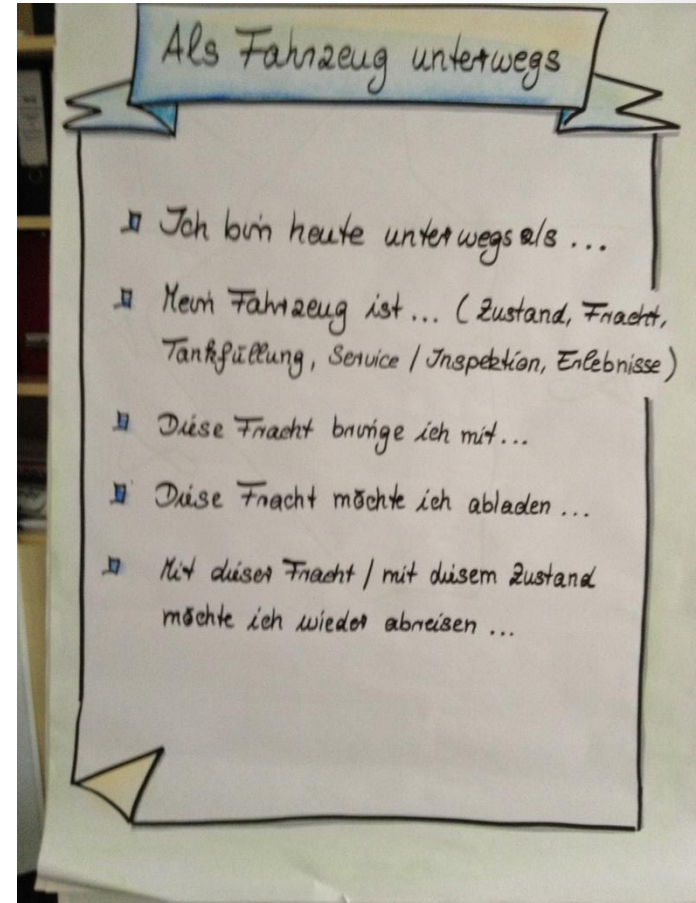 Als Fahrzeug unterwegs
Ich bin heute unterwegs als ...
Mein Fahrzeug ist ... (Zustand, Fracht,
Tankfüllung, Service / Inspektion, Erlebnisse)
Diese Fracht bringe ich mit ...
Diese Fracht möchte ich abladen ...
Mit dieser Fracht / mit diesem Zustand
möchte ich wieder abreisen ...